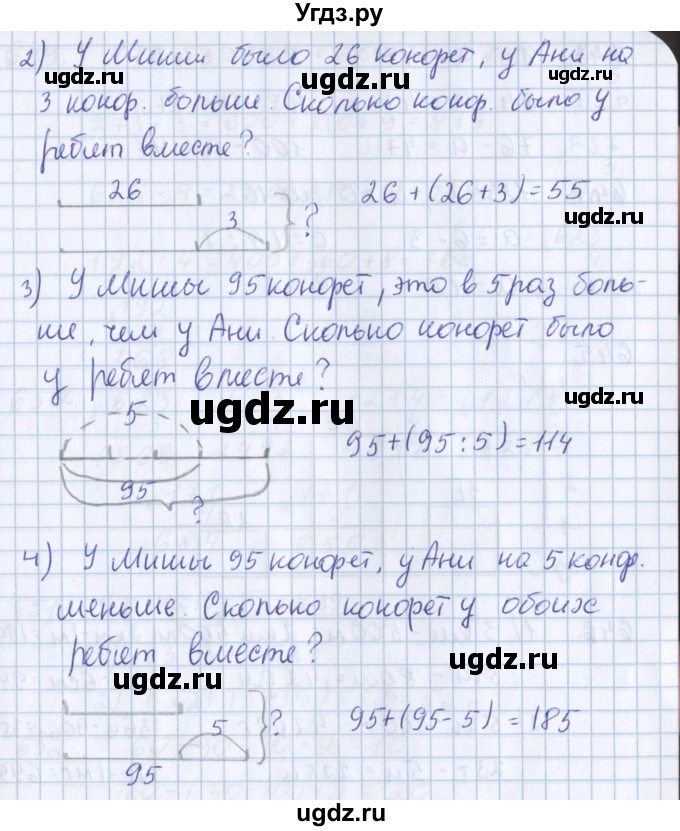 Угдз.ру
2) У Миши было 26 конфет, у Ани на
ugdz.ru ugdz.ru
3 конф. больше. Сколько конф. было у
ребят вместе?
ugdz.ru ugdz.ru
26
26+(26+3)=55
3 ?
ugdz.ru ugdz.ru
3) У Миши 95 конфет, это в 5 раз боль-
ше, чем у Ани. Сколько конфет было
у ребят вместе?
ugdz.ru
ugdz.ru
5
95+(95:5)=114
95
?
4) У Миши 95 конфет, у Ани на 5 конф.
меньше. Сколько конфет у обоих
ребят вместе?
ugdz.ru
ugdz.ru
5 ?
95+(95-5)=185
95
ugdz.ru ugdz.ru
ugdz.ru